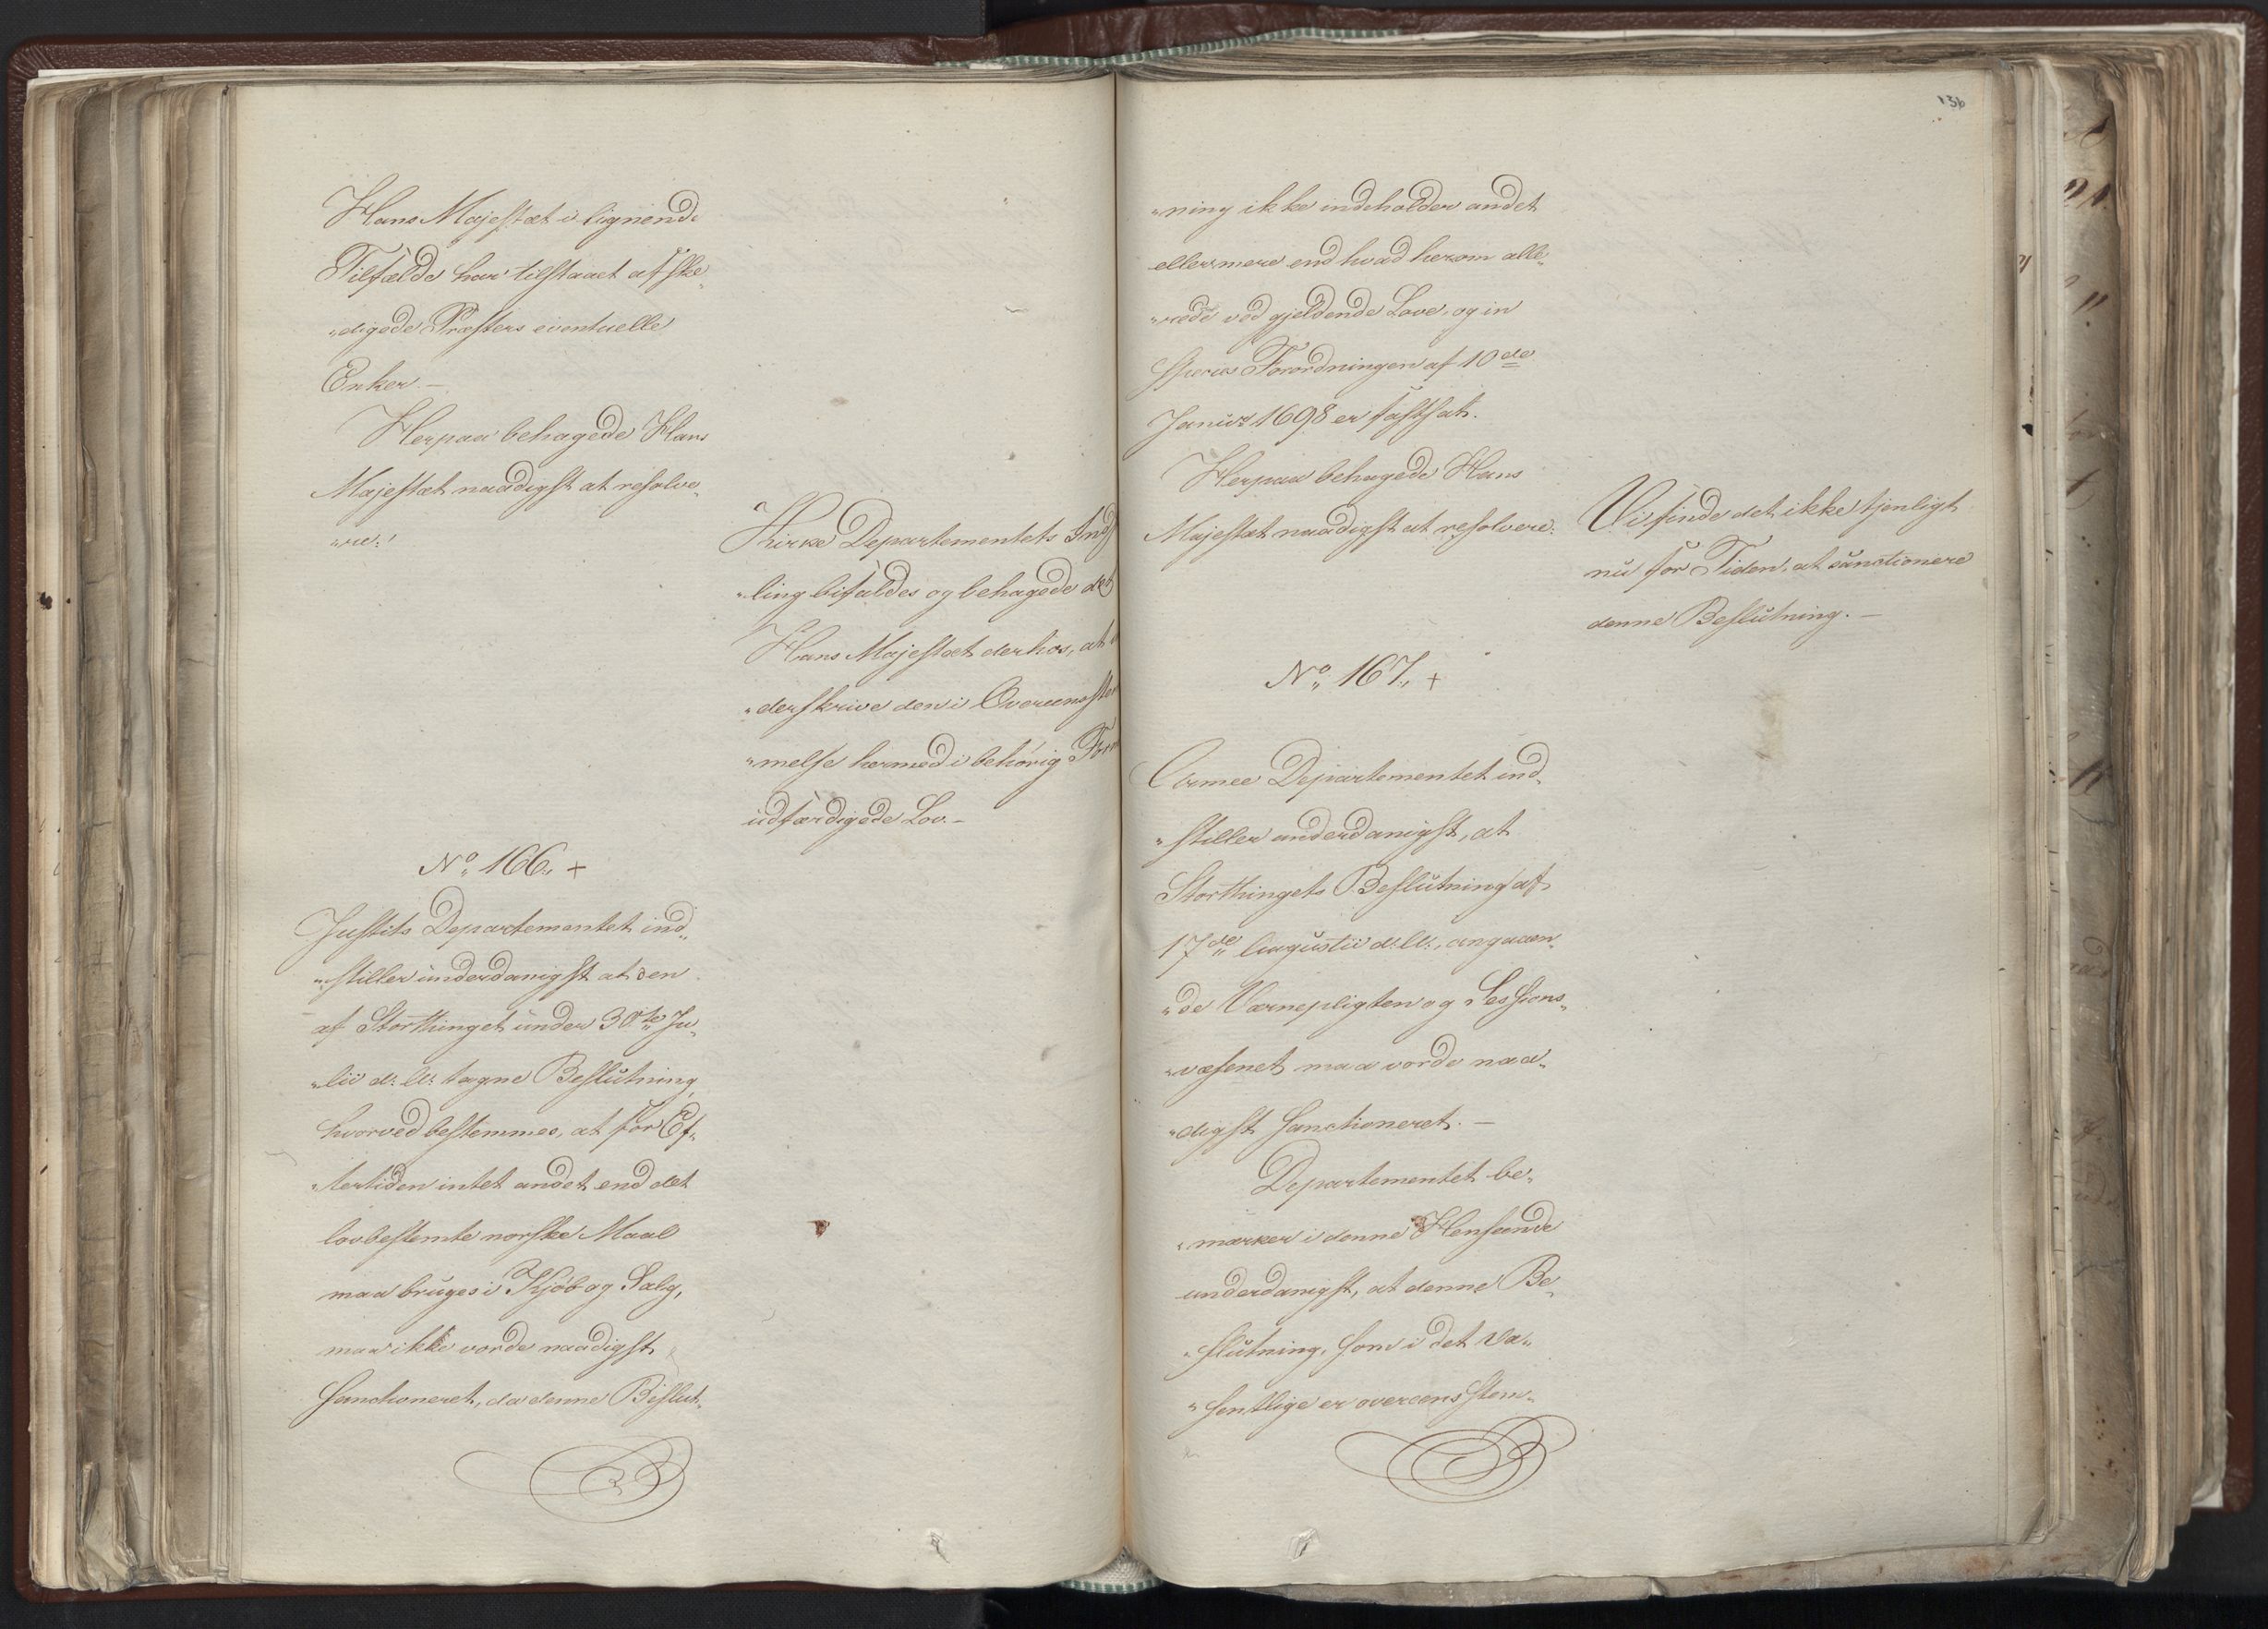 Hans Majestæt i lignende
Tilfælde har tilstaaet afske„
„digede Præsters eventuelle
Enker.—
Herpaa behagede Hans
Majestæt naadigst at resolve„
„re:
Kirke Departementets Ind
„ling bifaldes og behagede det
Hans Majestæt derhos, at
„derskrive den i Overeensste
„melse hermed i behörig Form
udfærdigede Lov.—
No. 166., +
Justits Departementet ind„
„stiller underdanigst at den
af Storthinget under 30te Ju„
„lii d: A: tagne Beslutning,
hvorved bestemmes, at for Ef„
„tertiden intet andet end det
lovbestemte norske Maal
maa bruges i Kjöb og Salg,
maa ikke vorde naadigst
Sanctioneret, da denne Beslut„
136
„ning ikke indeholder andet
eller mere end hvad herom alle„
„rede ved gjeldende Love, og in
specie Forordningen af 10de
Januar 1698 er fastsat.
Herpaa behagede Hans
Majestæt naadigst at resolvere:
Vi finde det ikke tjenligt
nu for Tiden, at sanctionere
denne Beslutning.—
No. 167., +
Armee Departementet ind„
„stiller underdanigst, at
Storthingets Beslutning af
17de Augustii d: A:, angaaen„
„de Værnepligten og Sessions„
„væsenet maa vorde naa„
„digst Sanctioneret.—
Departementet be„
„mærker i denne Henseende
underdanigst, at denne Be„
„slutning, som i det Væ„
„sentlige er overeensstem„